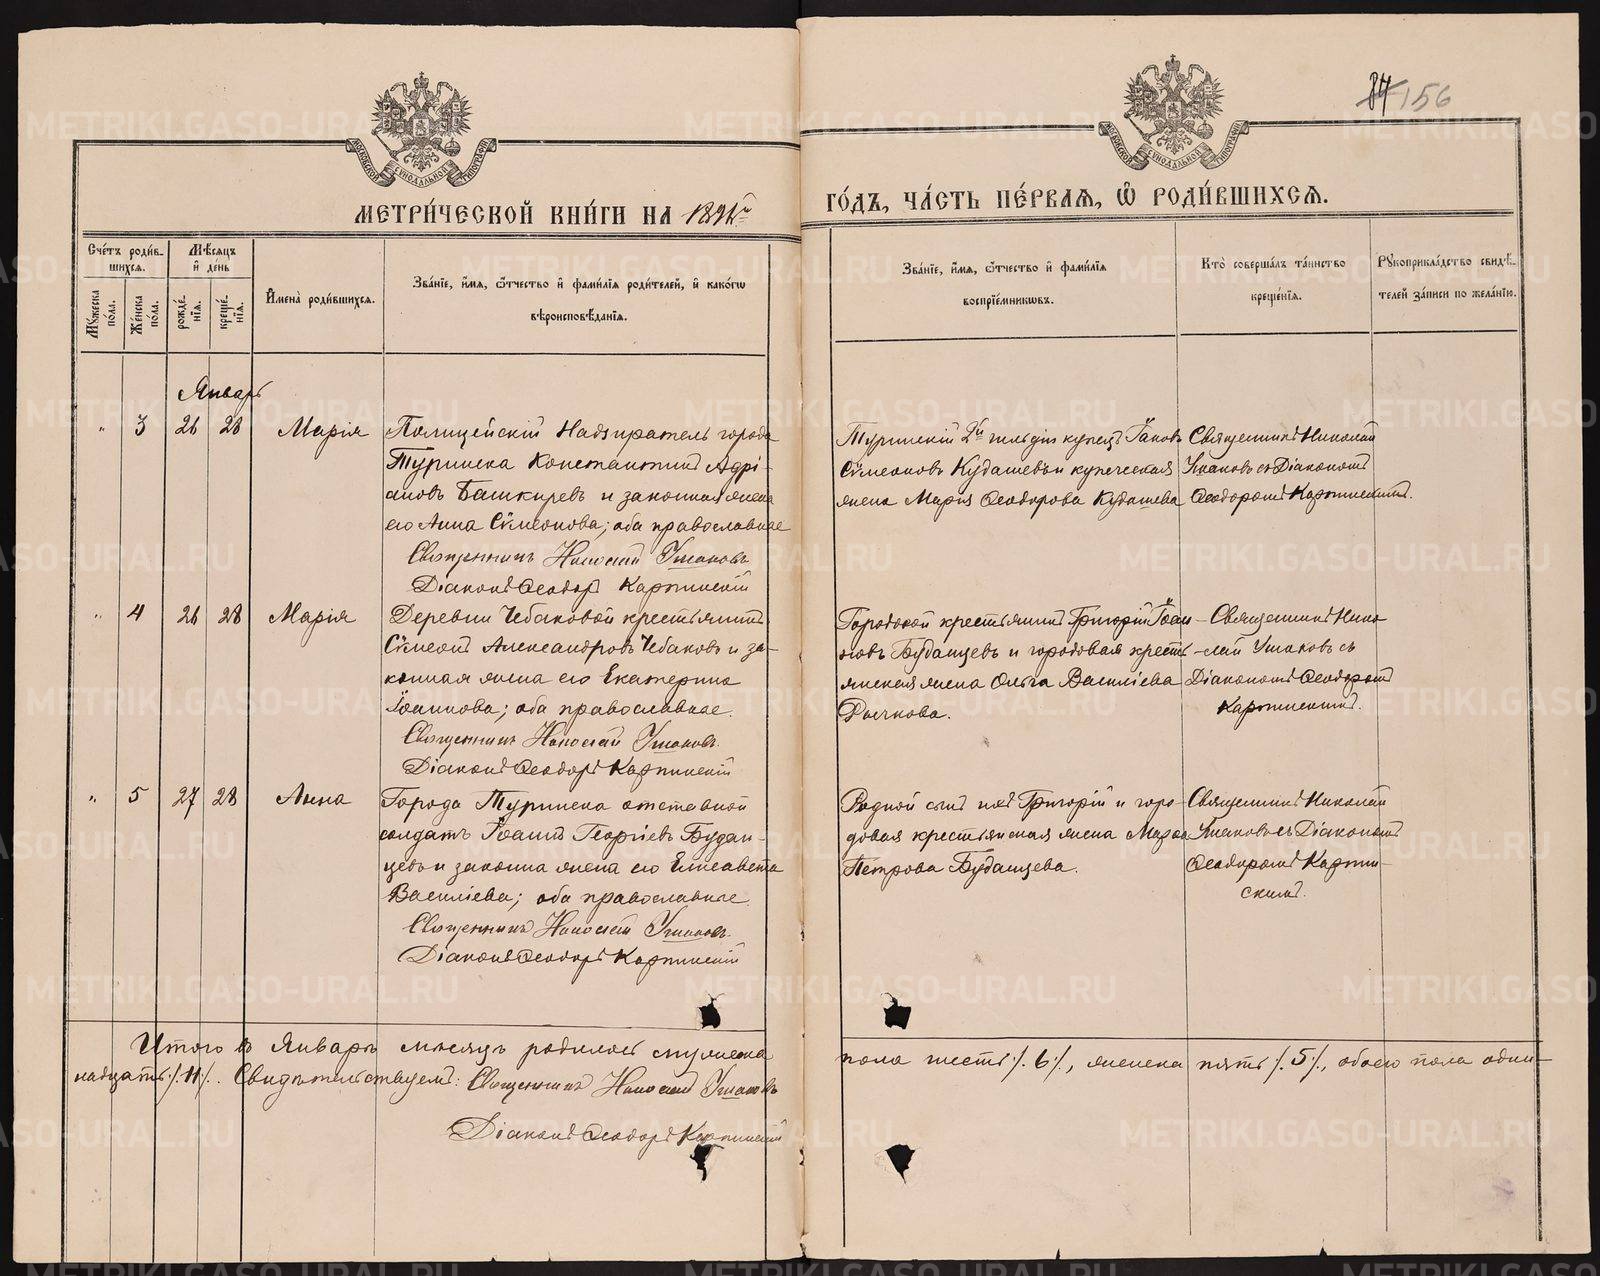 84 156
МОСКОВСКОЙ СѴНОДАЛЬНОЙ ТИПОГРАФІИ
МОСКОВСКОЙ СѴНОДАЛЬНОЙ ТИПОГРАФІИ
МЕТРИ́ЧЕСКОЙ КНИ́ГИ НА
ГО́ДЪ, ЧА́СТЬ ПЕ́РВАѦ, Ѡ҆ РОДИ́ВШИХСѦ.
Сче́тъ роди́вшихсѧ.
Мꙋ́жеска по́ла.
Же́нска по́ла.
Мѣ́сѧцъ и҆ день
рожде́нїѧ.
креще́нїѧ.
И҆мена̀ роди́вшихсѧ.
Зва́нїе, и҆́мѧ, ѻ҆́тчество и҆ фами́лїѧ роди́телей, и҆ како́гѡ
вѣроисповѣ́данїѧ.
Зва́нїе, и҆́мѧ, ѻ҆́тчество и҆ фами́лїѧ
воспрїе́мникѡвъ.
Кто̀ соверша́лъ та́инство
креще́нїѧ.
Рꙋкоприкла́дство свидѣ́-
телей за́писи по жела́нїю.
Январь
" 3 26 28 Марія
Полицейскій Надзиратель города
Туринска Константинъ Адрі-
ановъ Башкиревъ и законная жена
его Анна Сѵмеонова; оба православные
Священникъ Николай Ушаковъ
Діаконъ Ѳеодоръ Карпинскій
Туринскій 2й гильдіи купецъ Іаковъ
Сѵмеоновъ Кудашевъ и купеческая
жена Марія Ѳеодорова Кудашева
Священникъ Николай
Ушаковъ съ Діакономъ
Ѳеодоромъ Карпинскимъ.
" 4 26 28 Марія
Деревни Чебаковой крестьянинъ
Сѵмеонъ Александровъ Чебаковъ и за-
конная жена его Екатерина
Іоаннова; оба православные.
Священникъ Николай Ушаковъ.
Діаконъ Ѳеодоръ Карпинскій
Городовой крестьянинъ Григорій Іоан-
новъ Буданцевъ и городовая кресть-
янская жена Ольга Василіева
Рычкова.
Священникъ Нико-
лай Ушаковъ съ
Діакономъ Ѳеодоромъ
Карпинскимъ.
" 5 27 28 Анна
Города Туринска отставной
солдатъ Іоаннъ Георгіевъ Будан-
цевъ и законна жена его Елисавета
Василіева; оба православные.
Священникъ Николай Ушаковъ.
Діаконъ Ѳеодоръ Карпинскій
Родной сынъ ихъ Григорій и горо-
довая крестьянская жена
Петрова Буданцева.
Священникъ Николай
Ушаковъ съ Діакономъ
Ѳеодоромъ Карпин-
скимъ.
Итого въ Январѣ мѣсяцѣ родилось мужеска
пола шесть /.6/., женска пять /.5/., обоего пола один-
надцать /.11/. Свидѣтельствуемъ: Священникъ Николай Ушаковъ
Діаконъ Ѳеодоръ Карпинскій
METRIKI.GASO-URAL.RU